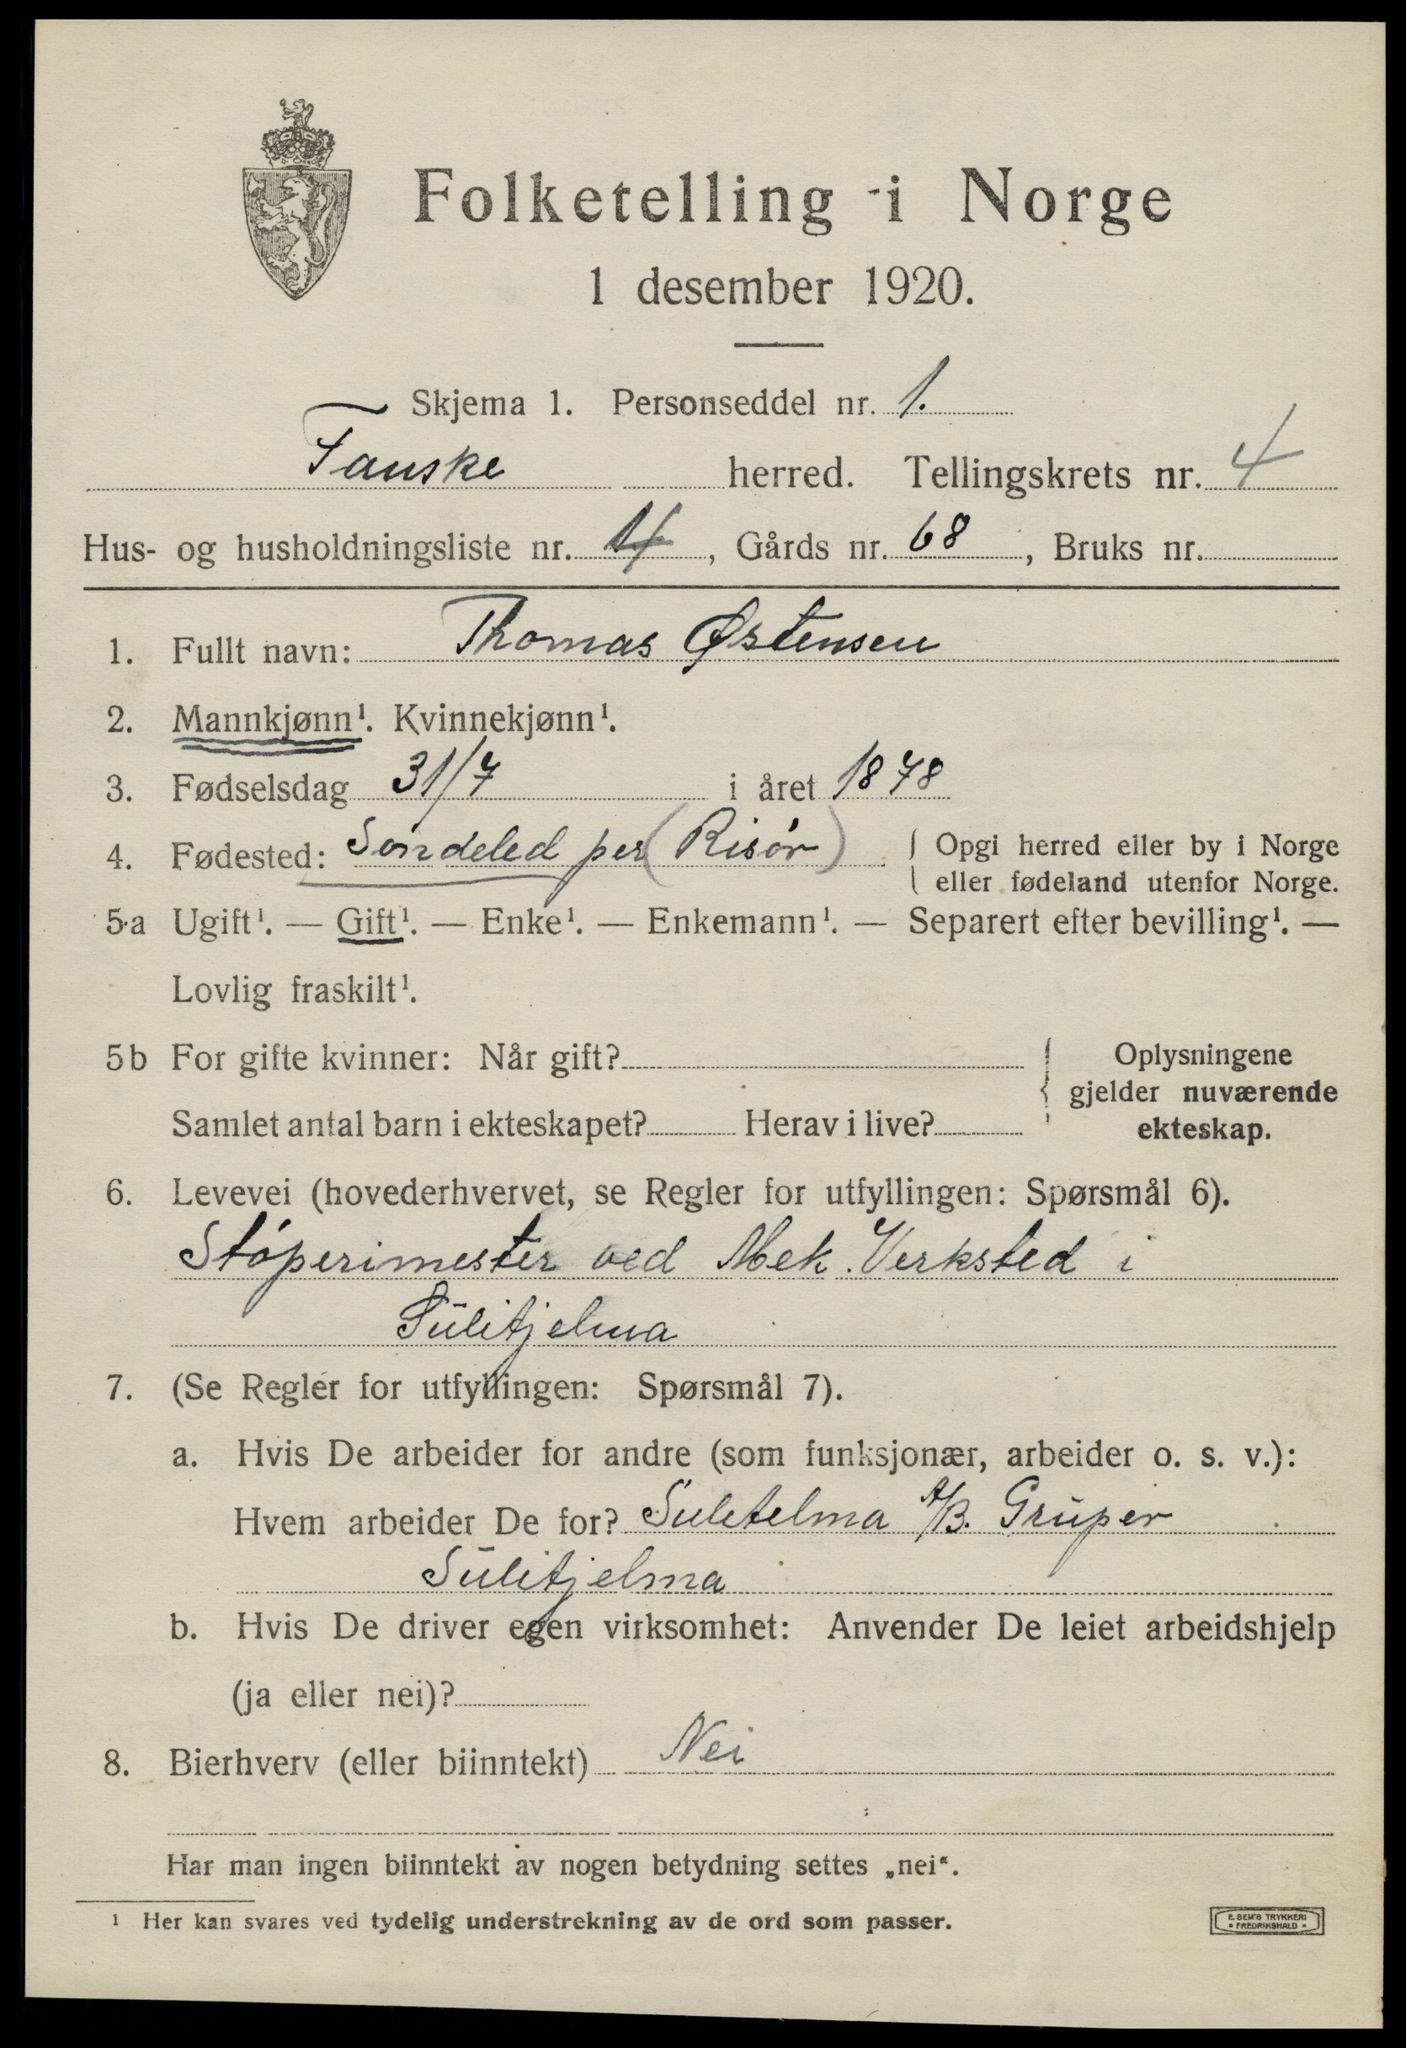 Folketelling i Norge
1 desember 1920.
Skjema 1. Personseddel nr. 1.
Fauske herred. Tellingskrets nr. 4
Hus- og husholdningsliste nr. 14, Gårds nr. 68, Bruks nr.
1. Fullt navn: Thomas Østensen
2. Mannkjønn¹. Kvinnekjønn¹.
3. Fødselsdag 31/7 i året 1878
4. Fødested: Söndeled per (Risör) { Opgi herred eller by i Norge
eller fødeland utenfor Norge.
5a Ugift¹. — Gift¹. — Enke¹. — Enkemann¹. — Separert efter bevilling¹. —
Lovlig fraskilt¹.
5b For gifte kvinner: Når gift? { Oplysningene
gjelder nuværende
Samlet antal barn i ekteskapet? Herav i live? ekteskap.
6. Levevei (hovederhvervet, se Regler for utfyllingen: Spørsmål 6).
Stóperimester ved Mek. Verksted i
Sulitjelma
7. (Se Regler for utfyllingen: Spørsmål 7).
a. Hvis De arbeider for andre (som funksjonær, arbeider o. s. v.):
Hvem arbeider De for? Suletelma A/B. Gruper
Sulitjelma
b. Hvis De driver egen virksomhet: Anvender De leiet arbeidshjelp
(ja eller nei)?
8. Bierhverv (eller biinntekt) Nei
Har man ingen biinntekt av nogen betydning settes „nei“.
¹ Her kan svares ved tydelig understrekning av de ord som passer.
E. SEM'S TRYKKERI
• FREDRIKSHALD •